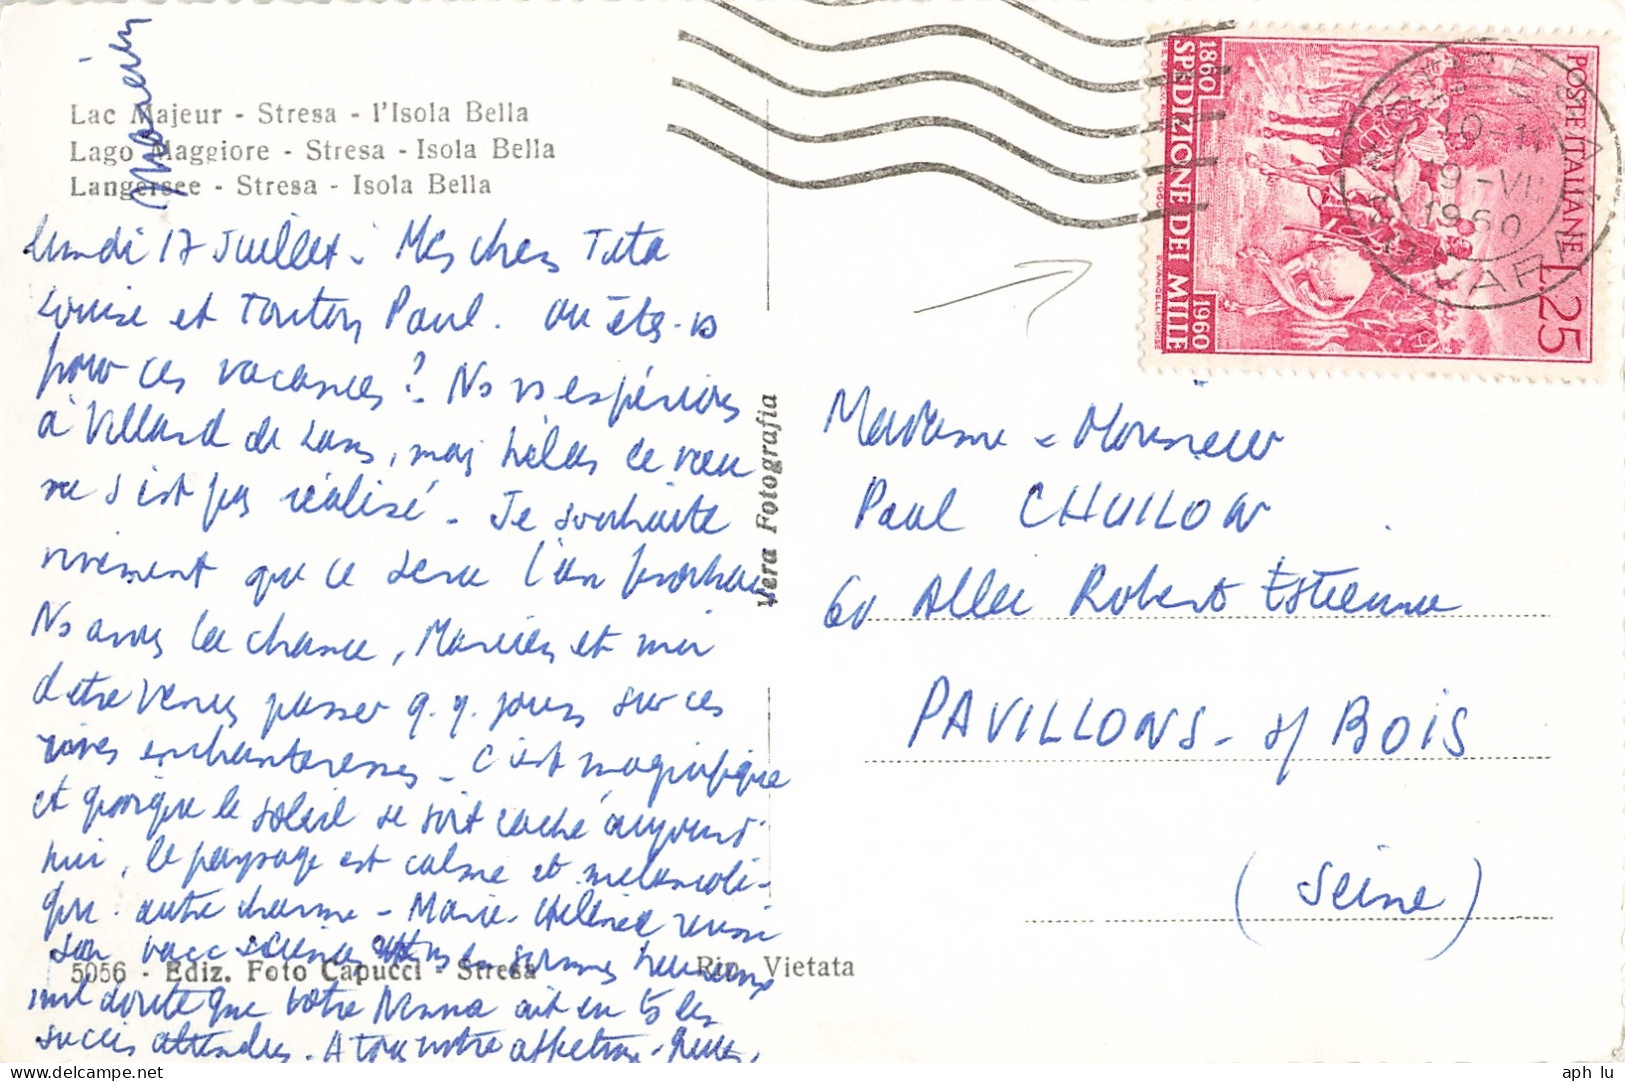 Lac Majeur - Stresa - l'Isola Bella
Lago Maggiore - Stresa - Isola Bella
Langensee - Stresa - Isola Bella
lundi 17 Juillet. Mes chers Tata
Louise et Tonton Paul. Où êtes-vs
pour ces vacances ? Ns vs espérions
à Villard de Lans, mais hélas ce vœu
ne s'est pas réalisé - Je souhaite
vivement que ce sera l'an prochain
Ns avons la chance, Marien et moi
d'être venus passer q.q. jours sur ces
rives enchanteresses - C'est magnifique
et quoique le soleil se soit caché aujourd'
hui, le paysage est calme et mélancoli-
que. autre charme - Marie-Hélène a réussi
son bacc sciences en sommes heureux
nul doute que votre ait eu ts les
succès attendus. A tous notre affection.
5056 - Ediz. Foto Capucci - Stresa
Rip. Vietata
Vera Fotografia
1860 SPEDIZIONE DEI MILLE 1960
POSTE ITALIANE L.25
10-11
19-VII
1960
NOVARA
Madame - Monsieur
Paul CHUILON
60 Allée Robert Estienne
PAVILLONS - s/ BOIS
(Seine)
aph lu